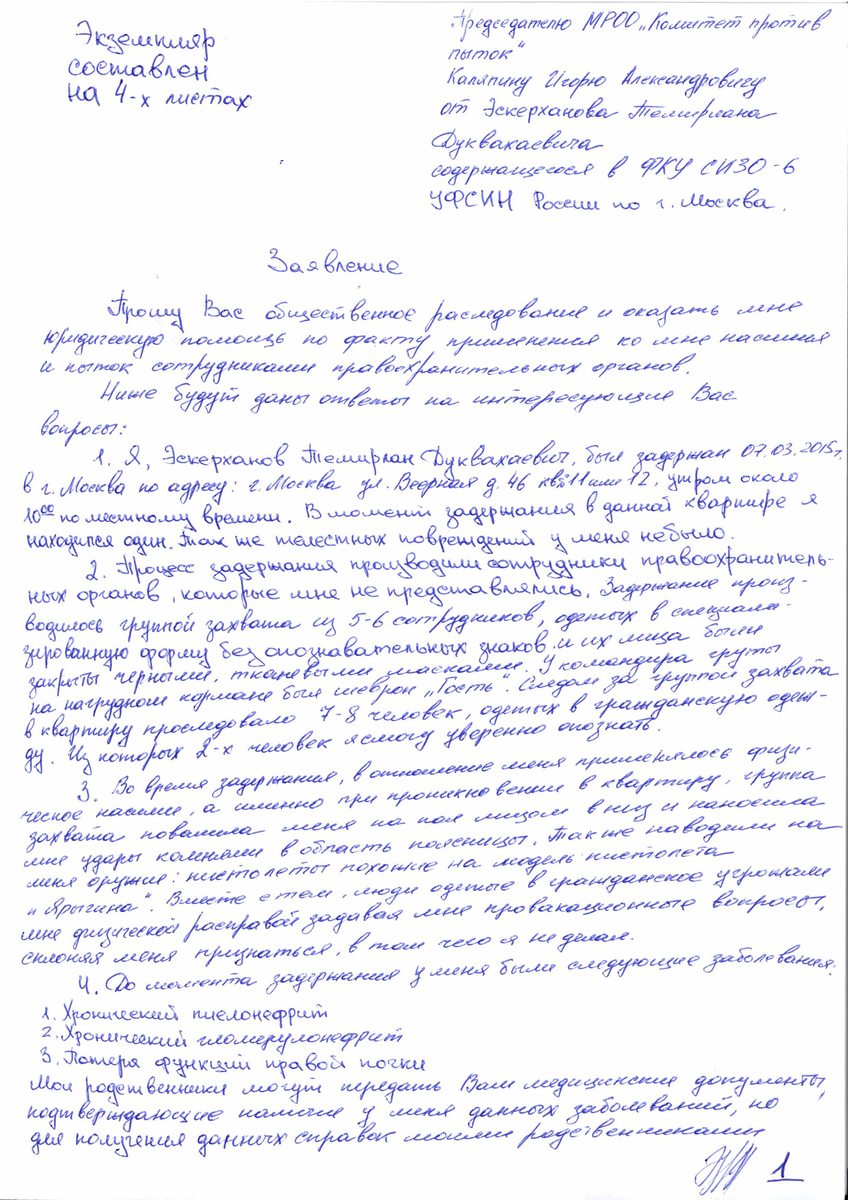 Экземпляр
составлен
на 4-х листах
Председателю МРОО „Комитет против
пыток“
Каляпину Игорю Александровичу
от Эскерханова Темирлана
Дуквахаевича
содержащегося в ФКУ СИЗО-6
УФСИН России по г. Москва.
Заявление
Прошу Вас общественное раследование и оказать мне
юридическую помощь по факту применения ко мне насилия
и пыток сотрудниками правоохранительных органов.
Ниже будут даны ответы на интересующие Вас
вопросы:
1. Я, Эскерханов Темирлан Дуквахаевич, был задержан 07.03.2015г.
в г. Москва по адресу: г. Москва ул. Веерная д. 46 кв. 11 или 12, утром около
10⁰⁰ по местному времени. В момент задержания в данной квартире я
находился один. Так же телестных повреждений у меня небыло.
2. Процесс задержания производили сотрудники правоохранитель-
ных органов, которые мне не представлялись. Задержание произ-
водилось группой захвата из 5-6 сотрудников, одетых в специали-
зированную форму без опознавательных знаков и их лица были
закрыты черными, тканевыми масками. У командира группы
на нагрудном кармане был шеврон „Гость“. Следом за группой захвата
в квартиру проследовало 7-8 человек, одетых в гражданскую одеж-
ду. Из которых 2-х человек я смогу уверенно опознать.
3. Во время задержания, в отношение меня применялось физи-
ческое насилие, а именно при проникновении в квартиру, группа
захвата повалила меня на пол лицом в низ и наносила
мне удары коленями в область поясницы. Так же наводили на
меня оружие: пистолеты похожие на модель пистолета
„Ярыгина“. Вместе с тем, люди одетые в гражданское угрожали
мне физической расправой задавая мне провакационные вопросы,
склоняя меня признаться, в том чего я не делал.
4. До момента задержания у меня были следующие заболевания:
1. Хронический пиелонефрит
2. Хронический гломерулонефрит
3. Потеря функций правой почки
Мои родственники могут передать Вам медицинские документы,
подтверждающие наличие у меня данных заболеваний, но
для получения данных справок моими родственниками
1